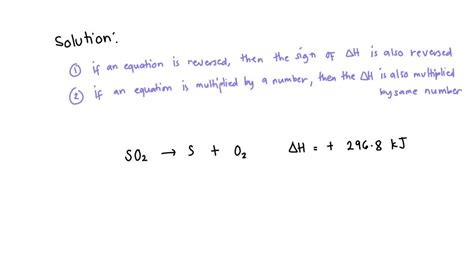 Solution:
① if an equation is reversed, then the sign of ΔH is also reversed
② if an equation is multiplied by a number, then the ΔH is also multiplied
by same number
SO₂ → S + O₂ ΔH = + 296.8 kJ